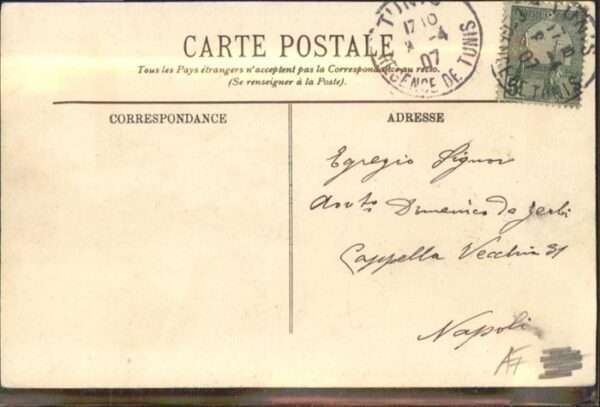 CARTE POSTALE
Tous les Pays étrangers n'acceptent pas la Correspondance au recto.
(Se renseigner à la Poste).
TUNIS
17 10
4
07
REGENCE DE TUNIS
TUNIS
17 10
4
07
DE TUNIS
CORRESPONDANCE
ADRESSE
Egregio Signor
Domenico de Zerbi
Cappella Vecchia 31
Napoli